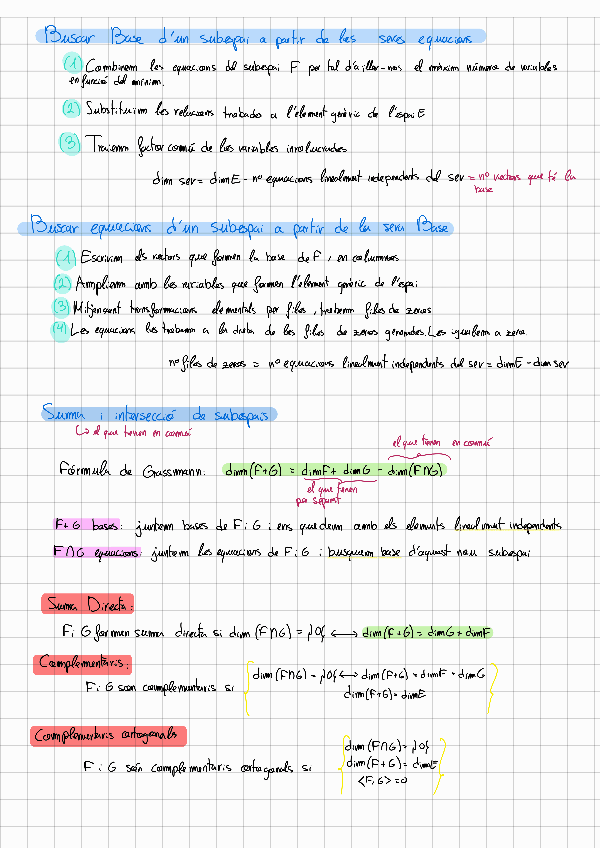 Buscar Base d'un subespai a partir de les seves equacions
(1) Combinem les equacions del subespai F per tal d'aïllar-nos el màxim número de variables
en funció del mínim.
(2) Substituim les relacions trobades a l'element genèric de l'espai E
(3) Traiem factor comú de les variables involucrades
dim sev = dim E - nº equacions linealment independents del sev = nº vectors que té la
base
Buscar equacions d'un subespai a partir de la seva Base
(1) Escrivim els vectors que formen la base de F, en columnes
(2) Ampliem amb les variables que formen l'element genèric de l'espai
(3) Mitjançant transformacions elementals per files, trobem files de zeros
(4) Les equacions les trobem a la dreta de les files de zeros generades. Les igualem a zero.
nº files de zeros = nº equacions linealment independents del sev = dim E - dim sev
Suma i intersecció de subespais
↳ el que tenen en comú
el que tenen en comú
Fórmula de Grassmann: dim(F+G) = dim F + dim G - dim(F∩G)
el que tenen
per separat
F+G bases: juntem bases de F i G i ens quedem amb els elements linealment independents
F∩G equacions: juntem les equacions de F i G i busquem base d'aquest nou subespai
Suma Directa:
F i G formen suma directa si dim(F∩G) = {0} ⟷ dim(F+G) = dim G + dim F
Complementaris:
dim(F∩G) = {0} ⟷ dim(F+G) = dim F + dim G
F i G són complementaris si
dim(F+G) = dim E
Complementaris ortogonals
dim(F∩G) = {0}
F i G són complementaris ortogonals si dim(F+G) = dim E
<F,G> = 0